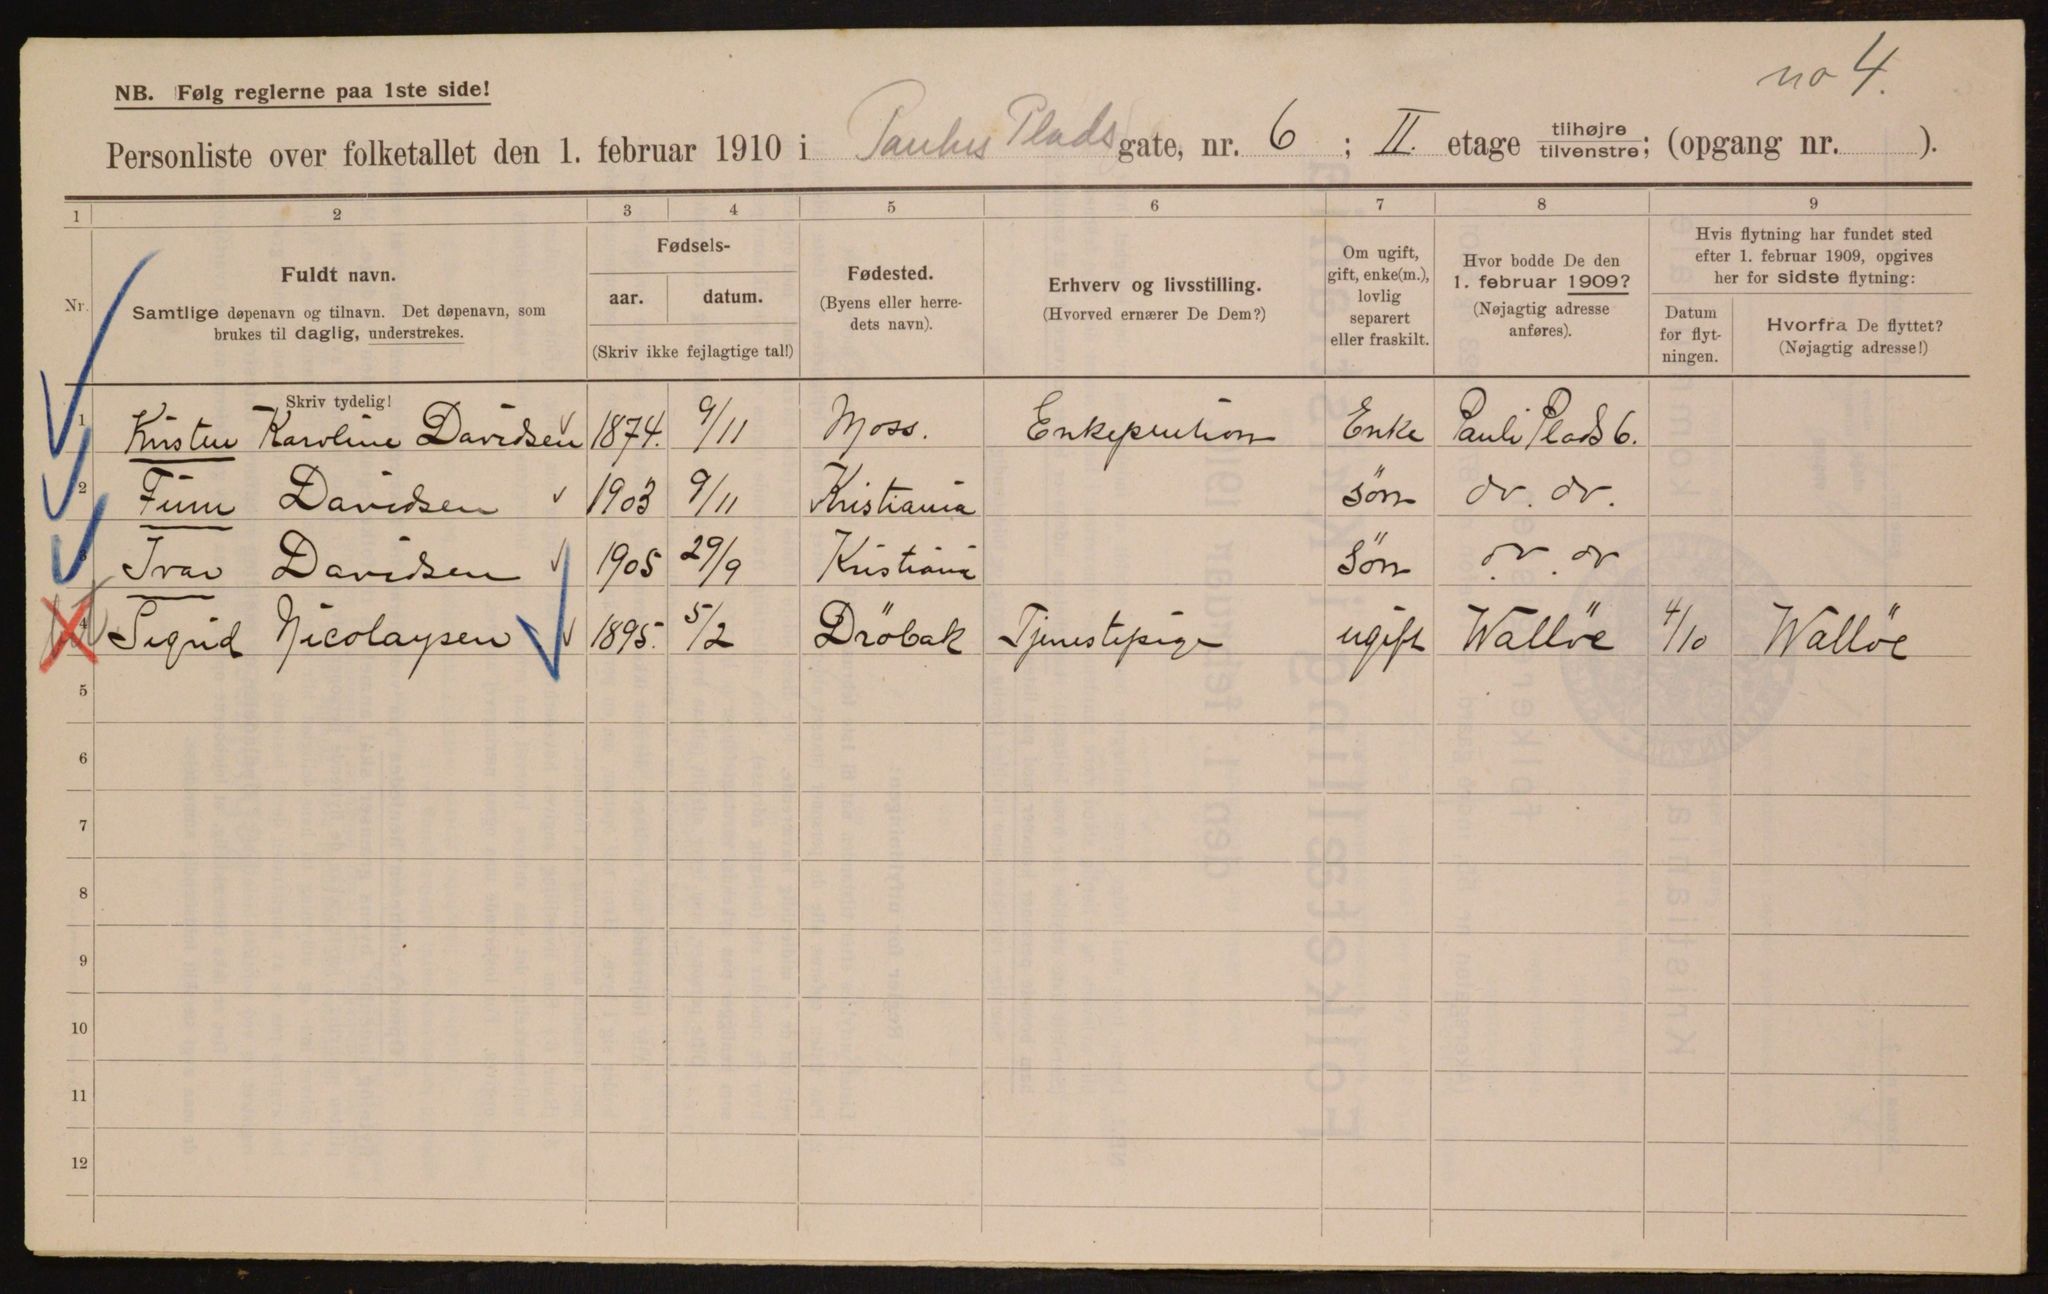 no 4.
NB. Følg reglerne paa 1ste side!
Personliste over folketallet den 1. februar 1910 i Paulus Plads gate, nr. 6; II. etage tilhøjre tilvenstre; (opgang nr. ).
1 2 3 4 5 6 7 8 9
Nr.
Fuldt navn.
Samtlige døpenavn og tilnavn. Det døpenavn, som
brukes til daglig, understrekes.
Skriv tydelig!
Fødsels-
aar. datum.
(Skriv ikke fejlagtige tal!)
Fødested.
(Byens eller herre-
dets navn).
Erhverv og livsstilling.
(Hvorved ernærer De Dem?)
Om ugift,
gift, enke(m.),
lovlig
separert
eller fraskilt.
Hvor bodde De den
1. februar 1909?
(Nøjagtig adresse
anføres).
Hvis flytning har fundet sted
efter 1. februar 1909, opgives
her for sidste flytning:
Datum
for flyt-
ningen.
Hvorfra De flyttet?
(Nøjagtig adresse!)
1 Kirsten Karoline Davidsen 1874. 9/11 Moss. Enkepention Enke Pauli Plads 6.
2 Finn Davidsen 1903 9/11 Kristiania Søn do. do.
3 Ivar Davidsen 1905 29/9 Kristiania Søn do. do
4 Sigrid Nicolaysen 1895. 5/2 Dröbak Tjenestepige ugift Wallöe 4/10 Wallöe
5
6
7
8
9
10
11
12